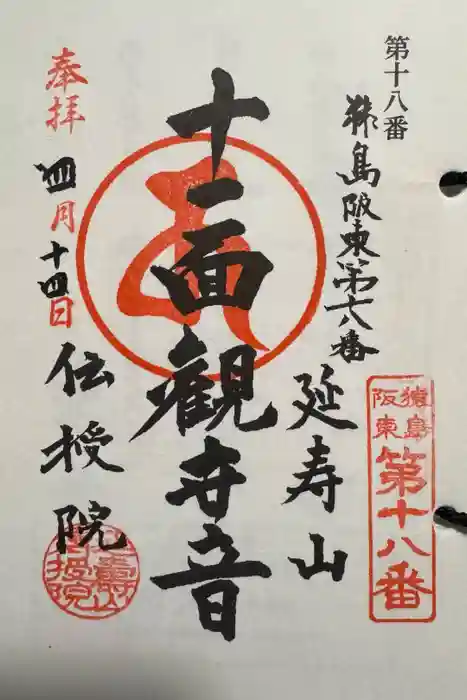 第十八番
猿島阪東第十八番
延寿山
猿島
阪東
第十八番
十一面觀世音
奉拝
四月十四日
伝授院